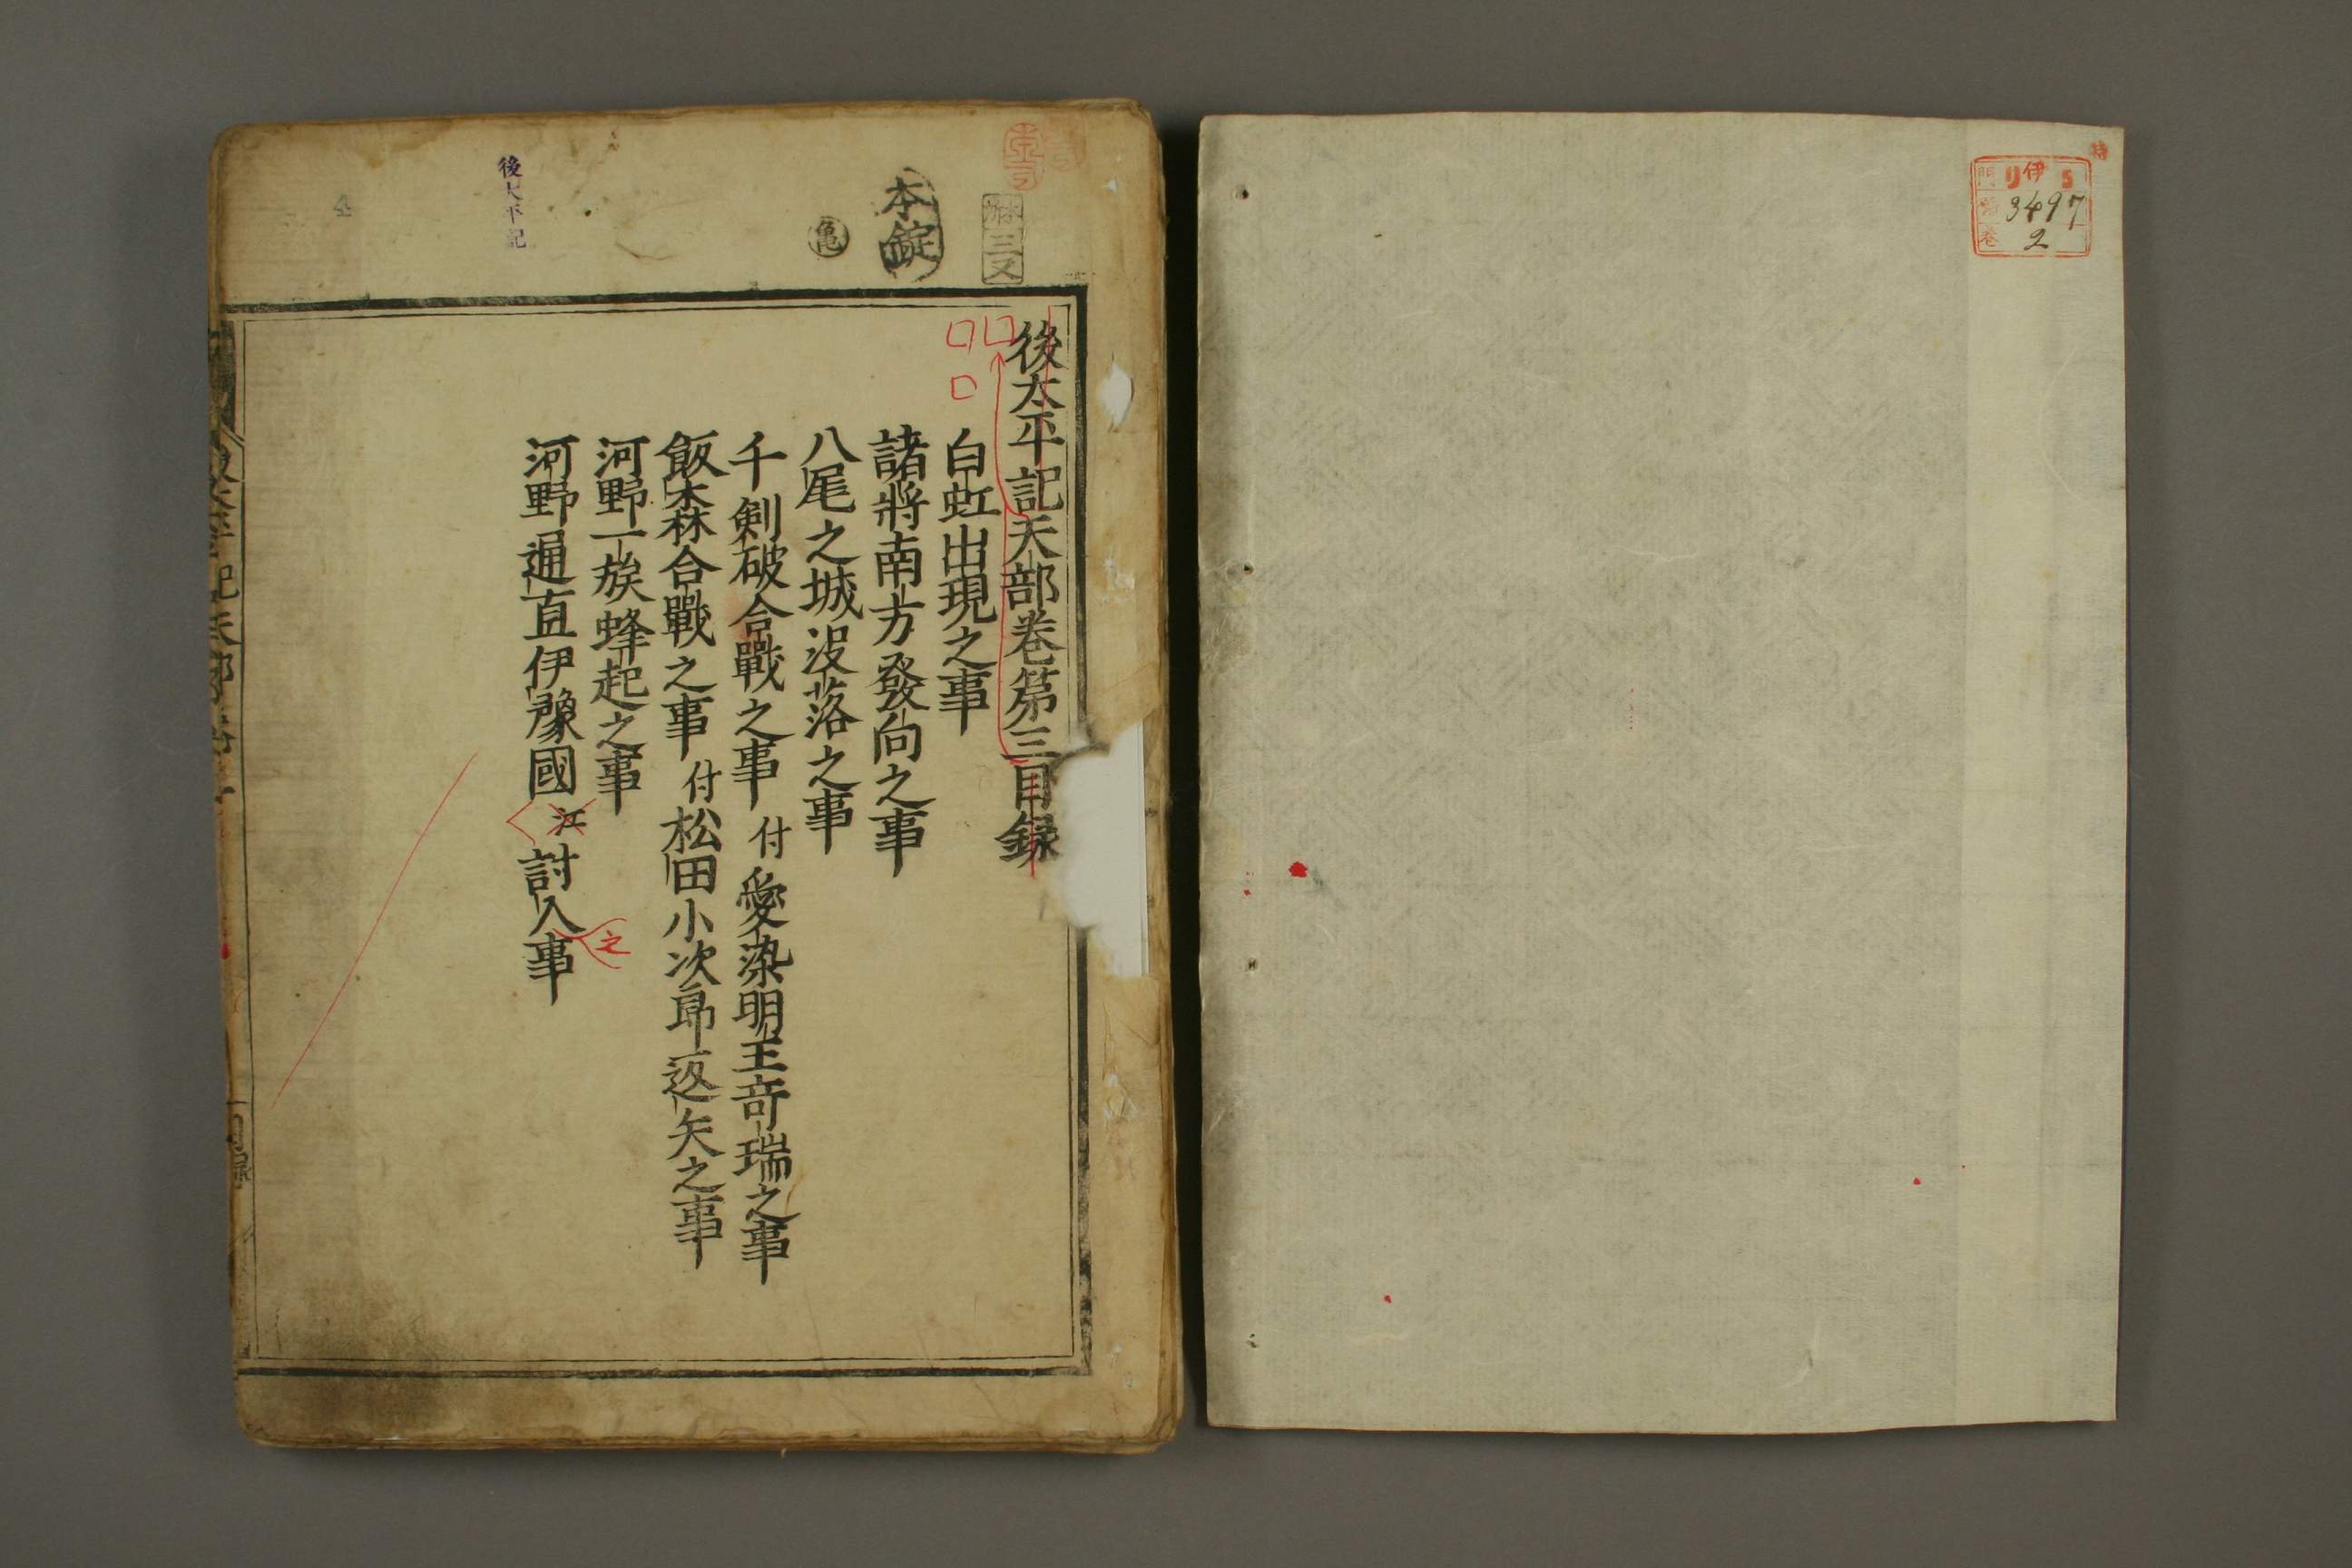 特
門 リ伊 5
號 3497
卷 2
本錠
亀
後太平記
4
後太平記天部巻第三目録
白虹出現之事
諸將南方發向之事
八尾之城没落之事
千剣破合戰之事 付 愛染明王竒瑞之事
飯森合戰之事 付 松田小次郎返矢之事
河野一族蜂起之事
河野通直伊豫國江討入事
之